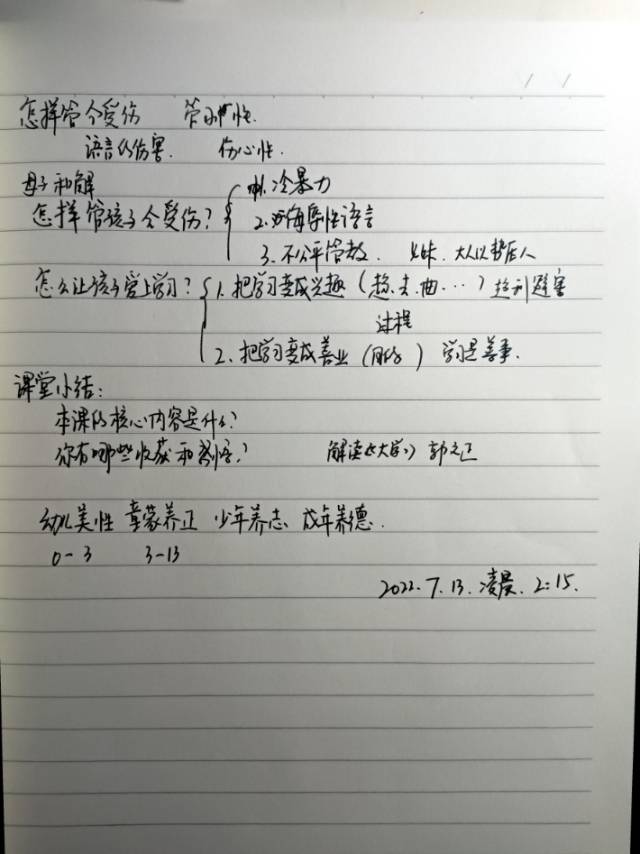 怎样管会受伤 管
语言的伤害. 伤心性.
母子和解
怎样管孩子会受伤? 1. 冷暴力
2. 侮辱性语言
3. 不公平管教. 大人以势压人
怎么让孩子爱上学习? 1. 把学习变成兴趣 (趋. 吉. ...) 趋利避害
过程
2. 把学习变成善业 ( ) 学习是善事.
课堂小结:
本课的核心内容是什么?
你有哪些收获和感悟? 解读《大学》 郭文正
幼儿养性 童蒙养正 少年养志 成年养德.
0-3 3-13
2022. 7. 13. 凌晨. 2:15.